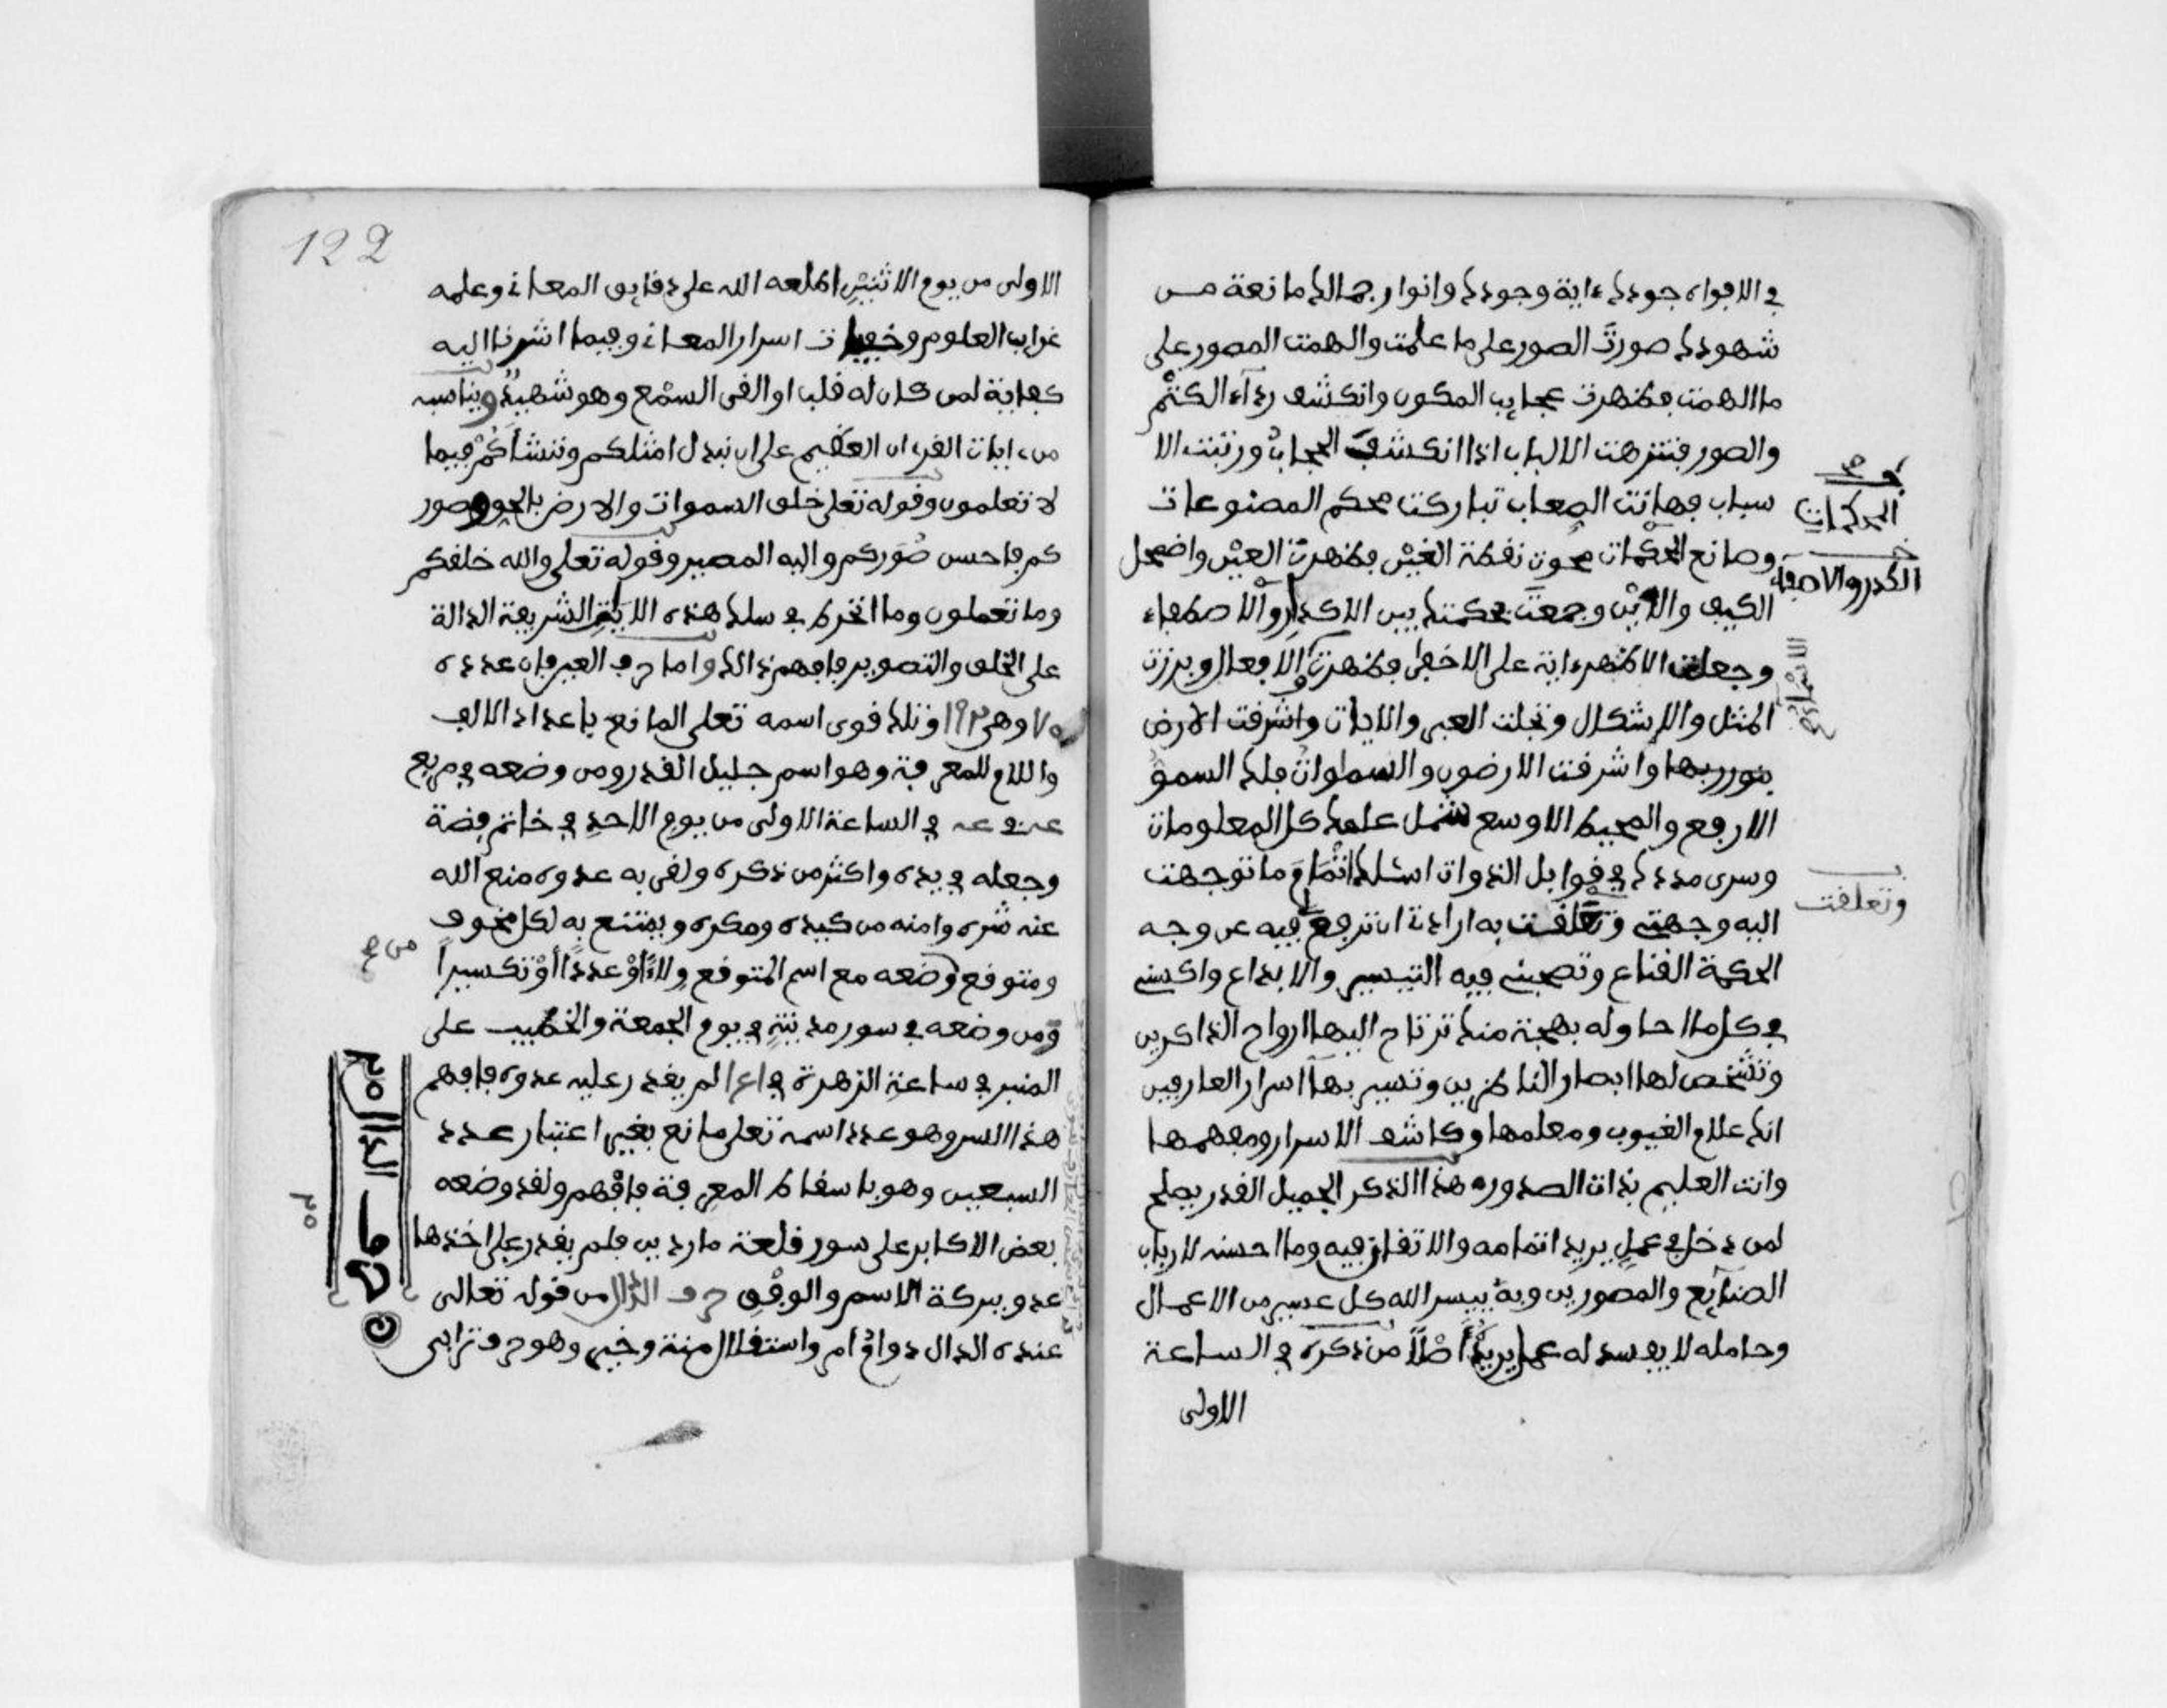 في الافواه جودك ءاية وجودك وانوار جمالك مانعة من
شهودك صورت الصور على ما علمت والهمت المصور على
ما الهمت فظهرت عجايب المكون وانكشف رداء الكتم
والصور فتنزهت الالباب اذا انكشف الحجاب ورتبت الا
سباب فهانت الصعاب تباركت محكم المصنوعات
وصانع المحكمات محوت نقطة الغين فظهرت العين واضمحل
الكيف والاين وجمعت بحكمتك بين الاكدار والاصطفاء
وجعلت الاظهر ءاية على الاخفى فظهرت الافعال وبرزت
المثل والاشكال وتجلت العبر والايات واشرفت الارض
بنور ربها واشرفت الارضون والسماوات فلك السمو
الارفع والمحيط الاوسع شمل علمك كل المعلومات
وسرى مددك في قوابل الذوات اسئلك اتمام ما توجهت
اليه وجهتي وتعلقت به ارادتي ان ترفع فيه عن وجه
الحكمة القناع وتصحبني فيه التيسير والابداع واكسني
في كل ما احاوله بهجة منك ترتاح اليها ارواح الذاكرين
وتشخص لها ابصار الناظرين وتسير بها اسرار العارفين
انك علام الغيوب ومعلمها وكاشف الاسرار ومفهمها
وانت العليم بذات الصدور هذا الذكر الجميل القدر يصلح
لمن دخل في عمل يريد اتمامه والاتفان فيه وما احسنه لارباب
الصنايع والمصورين وبه ييسر الله كل عسير من الاعمال
وحامله لا يفسد له عمل يريده اصلا من ذكره في الساعة
الاولى
المحكمات
الكدر والاصفياء
وتعلقت
122
الاولى من يوم الاثنين اطلعه الله على دقايق المعاني وعلمه
غرايب العلوم وخفيات اسرار المعاني وفيما اشرنا اليه
كفاية لمن كان له قلب او القى السمع وهو شهيد ويناسبه
من ءايات القرءان العظيم على ان نبدل امثلكم وننشأكم فيما
لا تعلمون وقوله تعلى خلق السموات والارض بالحق وصور
كم فاحسن صوركم واليه المصير وقوله تعلى والله خلقكم
وما تعملون وما انخرط في سلك هذه الاية الشريفة الدالة
على الخلق والتصوير فافهم ذلك واما حرف العين فان عدده
٧٥ وهي ١٩٢ وتلك قوى اسمه تعلى المانع باعداد الالف
واللام للمعرفة وهو اسم جليل القدر ومن وضعه في مربع
في الساعة الاولى من يوم الاحد في خاتم فضة
وجعله في يده واكثر من ذكره ولقى به عدوه منع الله
عنه شره وامنه من كيده ومكره ويمتنع به لكل مخوف
ومتوقع وضعه مع اسم المتوقع ولاءً او عدداً او تكسيراً
ومن وضعه في سور مدينة في يوم الجمعة والخطيب على
المنبر في ساعة الزهرة لم يقدر عليه عدوه فافهم
هذا السر وهو عدد اسمه تعلى مانع بغير اعتبار عدد
السبعين وهو باسقاط المعرفة فافهم ولقد وضعه
بعض الاكابر على سور قلعة ماردين فلم يقدر على اخذها
عدو ببركة الاسم والوفق حرف الدال من قوله تعالى
عنده الدال دوام امر واستقلال منة وخير وهو حرف ترابي
حرف الدال ٣٥
٣٥